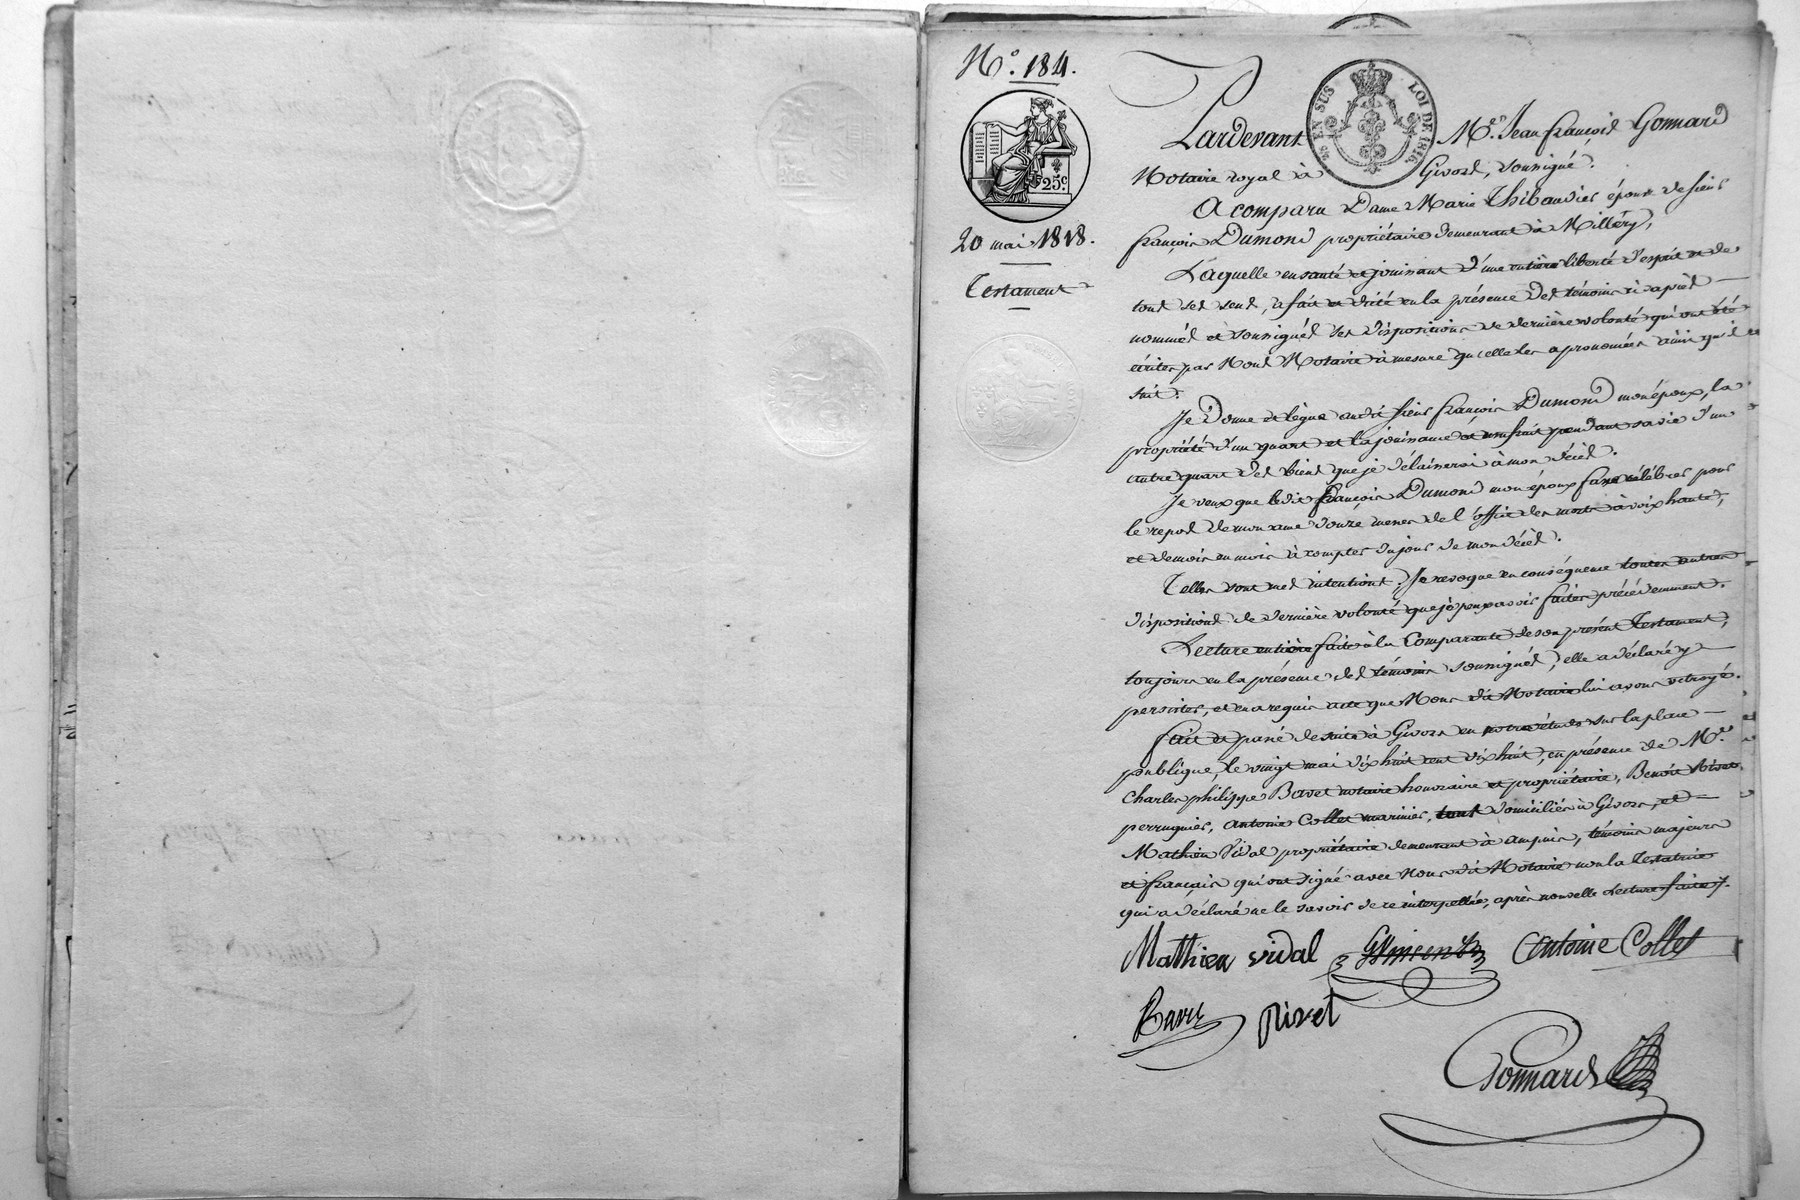 N.° 184.
EN SUS
LOI DE 1816.
25.c
20 mai 1818.
Testament
Pardevant M.e Jean françois Gonnard
Notaire royal à Givors, soussigné.
A comparu Dame Marie Thibaudier épouse de sieur
françois Dumond propriétaire demeurant à Millery,
Laquelle en santé et jouissant d'une entière liberté d'esprit et de
tous ses sens, a fait et dicté en la présence des témoins ci après
nommés et soussignés ses dispositions de dernière volonté qui ont été
écrites par Nous Notaire à mesure qu'elle les a prononcées ainsi qu'il
suit.
Je Donne et lègue audit sieur françois Dumond mon époux, la
propriété d'un quart et la jouissance et usufruit pendant sa vie d'un
autre quart des biens que je délaisserai à mon décès.
Je veux que ledit françois Dumond mon époux fasse célébrer pour
le repos de mon ame douze messes de l'office des morts à voix haute,
et de mois en mois à compter du jour de mon décès.
Telles sont mes intentions. Je revoque en conséquence toutes autres
dispositions de dernière volonté que je peux avoir faites précédemment.
Lecture entière faite à la Comparante de son présent Testament,
toujours en la présence des témoins soussignés, elle a déclaré y
persister, et en a requis acte que Nous dit Notaire lui avons octroyé.
fait et passé de suite à Givors en notre étude sur la place
publique, le vingt mai dix huit cent dix huit, en présence de M.e
Charles philippe Bovet notaire honoraire et propriétaire, Benoit Rivet
perruquier, Antoine Collet marinier, tous domiciliés à Givors, et
Mathieu Vidal propriétaire demeurant à ampuis, témoins majeurs
et français qui ont signé avec Nous dit Notaire non la Testatrice
qui a déclaré ne le savoir de ce interpellée, après nouvelle Lecture faite.
Mathieu vidal Antoine Collet
Rivet
Gonnard